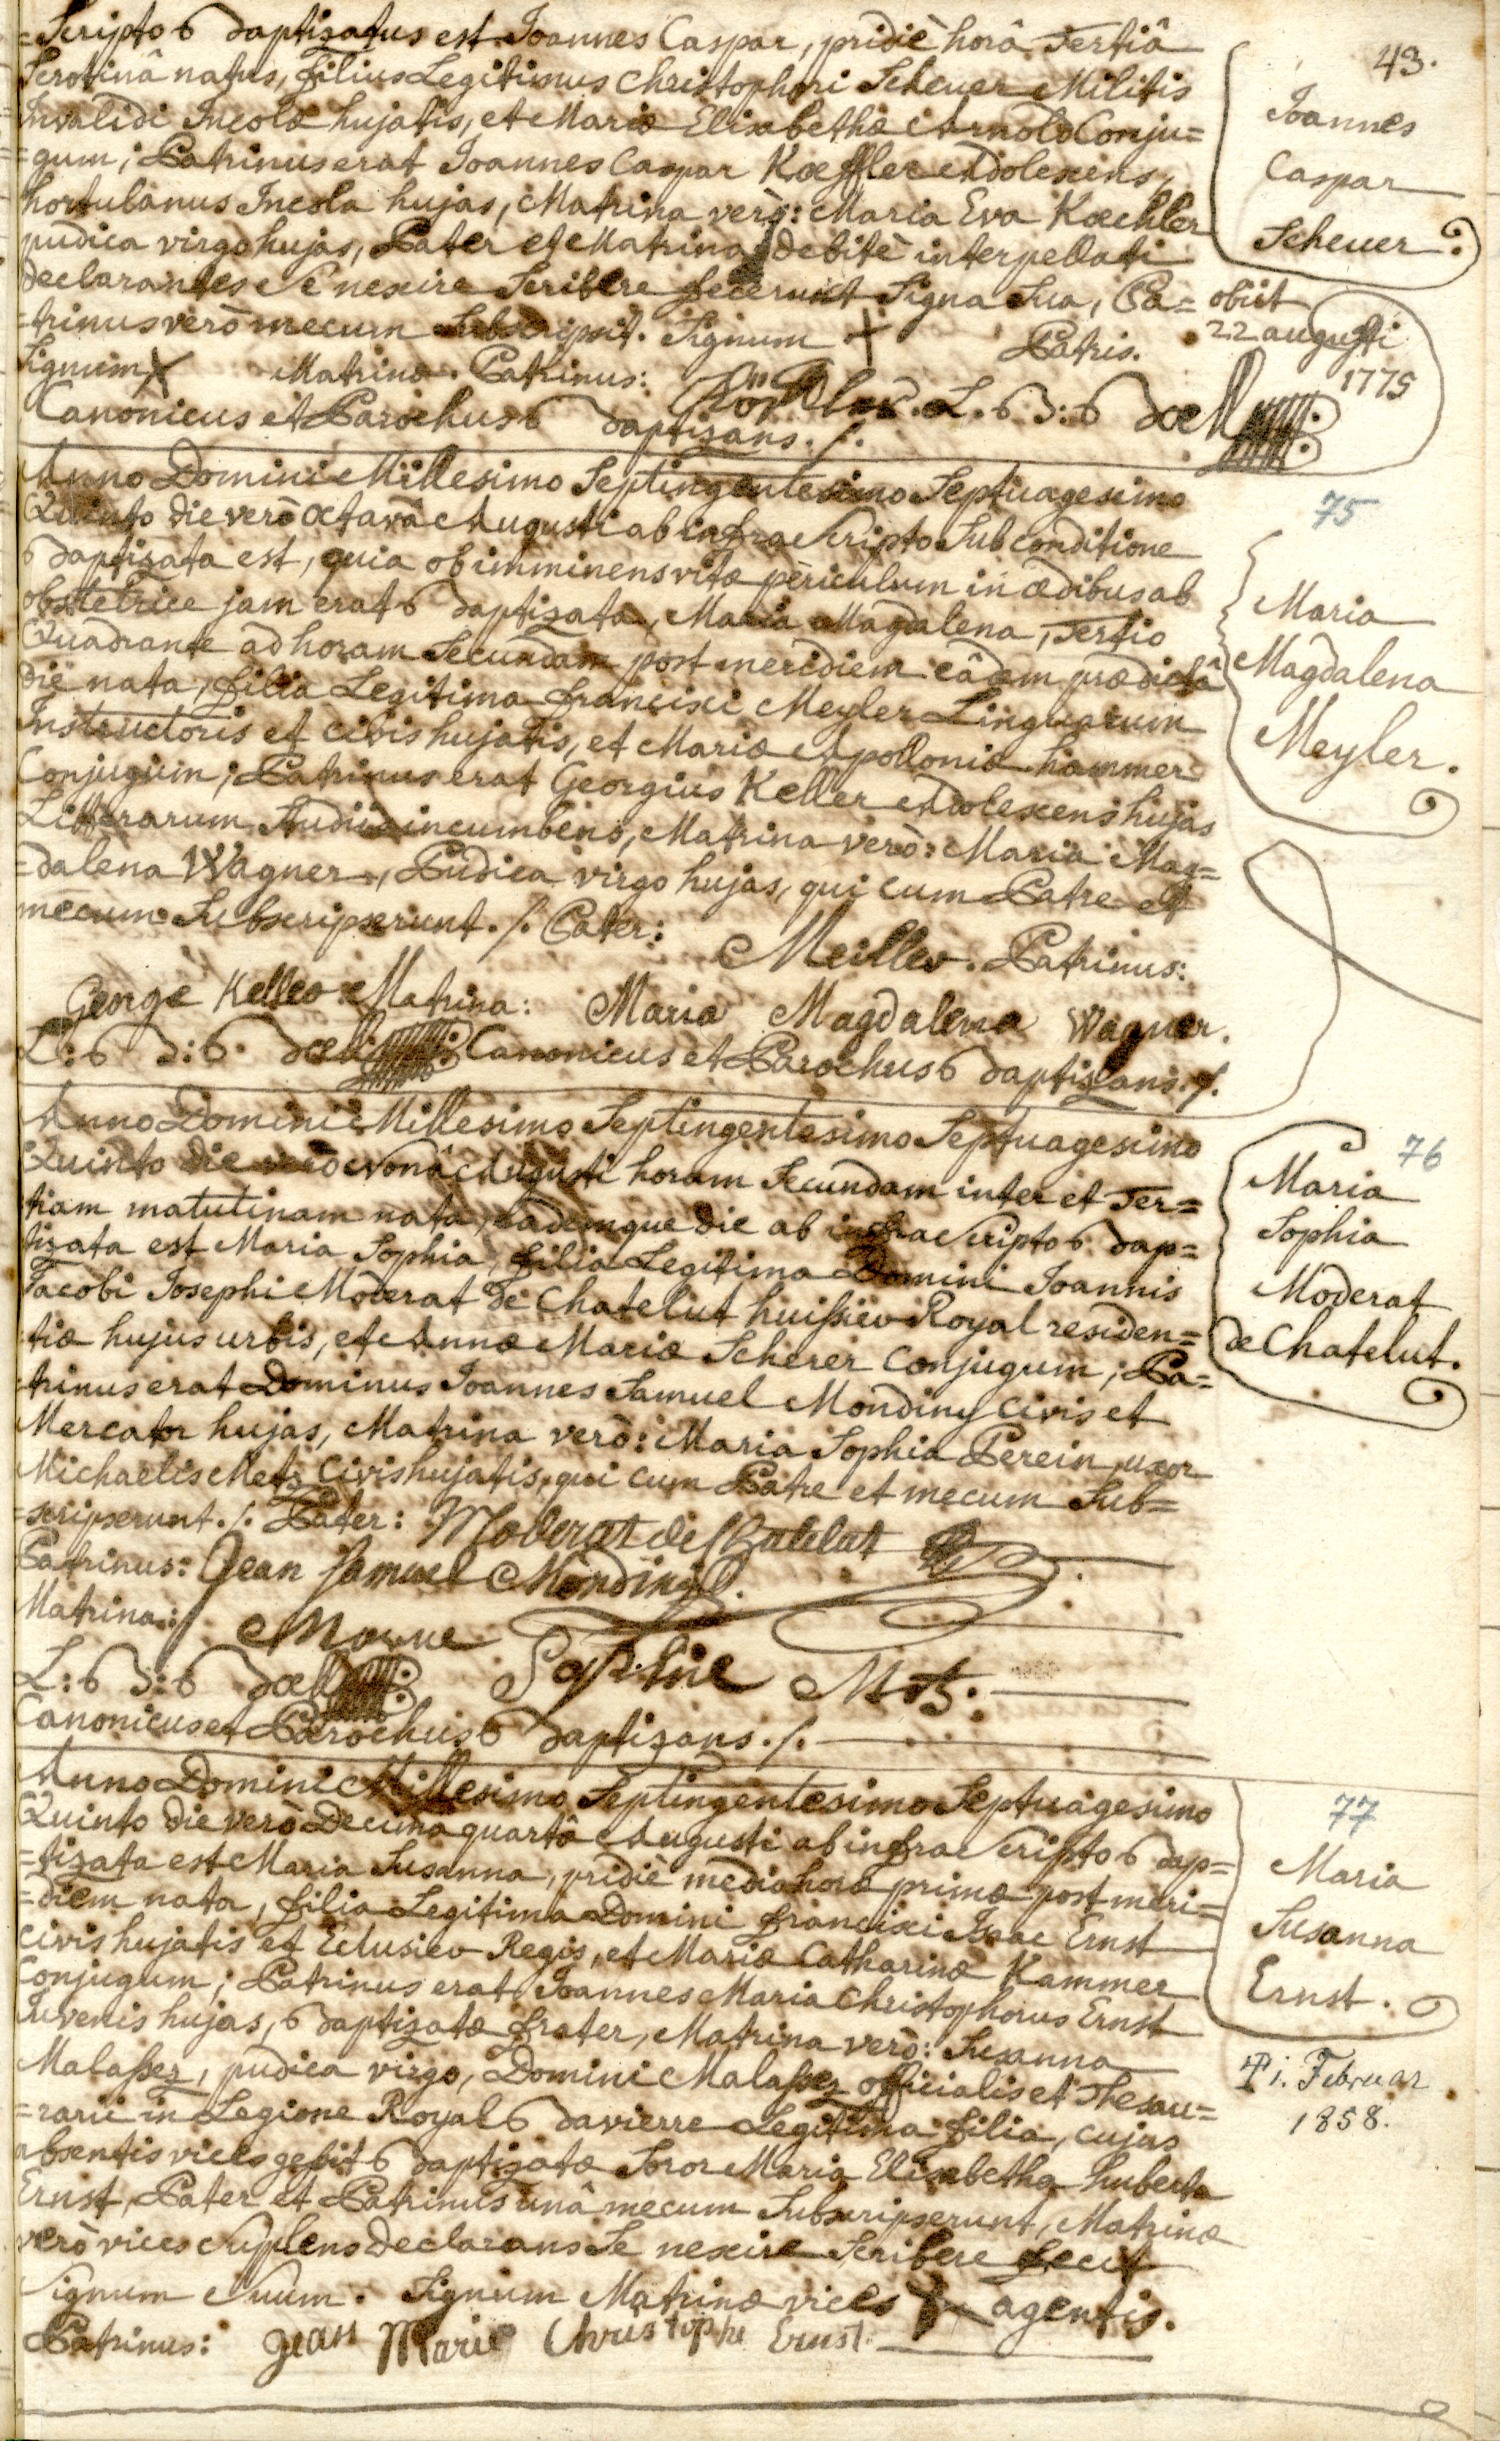 43.
=Scripto baptizatus est Joannes Caspar, pridiè horâ Tertiâ
Serotinâ natus, filius Legitimus Christophori Scheuer Militis
Invalidi Incolæ hujatis, et Mariæ Elisabethæ Arnold Conju=
=gum; Patrinus erat Joannes Caspar Kœffler Adolescens,
hortulanus Incola hujas, Matrina verò: Maria Eva Koechler
pudica virgo hujas, Pater et Matrina debitè interpellati
declarantes Se nescire Scribere fecerunt Signa Sua, Pa=
=trinus verò mecum Subscripsit. Signum + Patris.
Signum X Matrinæ. Patrinus:
Canonicus et Parochus baptizans ./.
Joannes
Caspar
Scheuer.
obiit
22 augusti
1775
Anno Domini Millesimo Septingentesimo Septuagesimo
Quinto die verò octavâ Augusti ab infra Scripto Sub conditione
baptizata est, quia ob imminens vitæ periculum in ædibus ab
obstetrice jam erat baptizata, Maria Magdalena, Tertio
Quadrante ad horam Secundam post meridiem eâdem prædictâ
die nata, filia Legitima Francisci Meyler Linguarum
Instructoris et civis hujatis, et Mariæ Apolloniæ hammer
Conjugum; Patrinus erat Georgius Keller Adolescens hujas
Litterarum Studiis incumbens, Matrina verò: Maria Mag=
=dalena Wagner, Pudica virgo hujas, qui cum Patre et
mecum Subscripserunt ./. Pater: Meiller. Patrinus:
George Keller Matrina: Maria Magdalena Wagner.
Canonicus et Parochus baptizans ./.
75
Maria
Magdalena
Meyler.
Anno Domini Millesimo Septingentesimo Septuagesimo
Quinto die verò Nonâ Augusti horam Secundam inter et Ter=
tiam matutinam nata, eademque die ab infra Scripto bap=
tizata est Maria Sophia, filia Legitima Domini Joannis
Jacobi Josephi Moderat de Chatelut huissier Royal residen=
tiæ hujus urbis, et Annæ Mariæ Scherer Conjugum; Pa=
trinus erat Dominus Joannes Samuel Mondiny Civis et
Mercator hujas, Matrina verò: Maria Sophia Perein, uxor
Michaelis Metz Civis hujatis, qui cum Patre et mecum Sub=
=scripserunt ./. Pater: Moderat de Chatelut
Patrinus: Jean Samuel Mondiny.
Matrina:
Sophie Metz.
Canonicus et Parochus baptizans ./.
76
Maria
Sophia
Moderat
de Chatelut.
Anno Domini Millesimo Septingentesimo Septuagesimo
Quinto die verò Decima quartâ Augusti ab infra Scripto bap=
=tizata est Maria Susanna, pridiè media horâ primæ post meri=
=diem nata, filia Legitima Domini Francisci Isaac Ernst
Civis hujatis et Eclusier Regis, et Mariæ Catharinæ Kammer
Conjugum; Patrinus erat Joannes Maria Christophorus Ernst
Juvenis hujas, baptizatæ frater, Matrina verò: Susanna
Malassez, pudica virgo, Domini Malassez officialis et Thesau=
=rarii in Legione Royal baviere Legitima filia, cujus
absentis vices gessit baptizatæ Soror Maria Elisabetha huberta
Ernst, Pater et Patrinus unâ mecum Subscripserunt, Matrinæ
verò vices Supplens declarans Se nescire Scribere fecit
Signum Suum. Signum Matrinæ vices + agentis.
Patrinus: Jean Marie Christophe Ernst.
77
Maria
Susanna
Ernst.
1. Februar
1858.